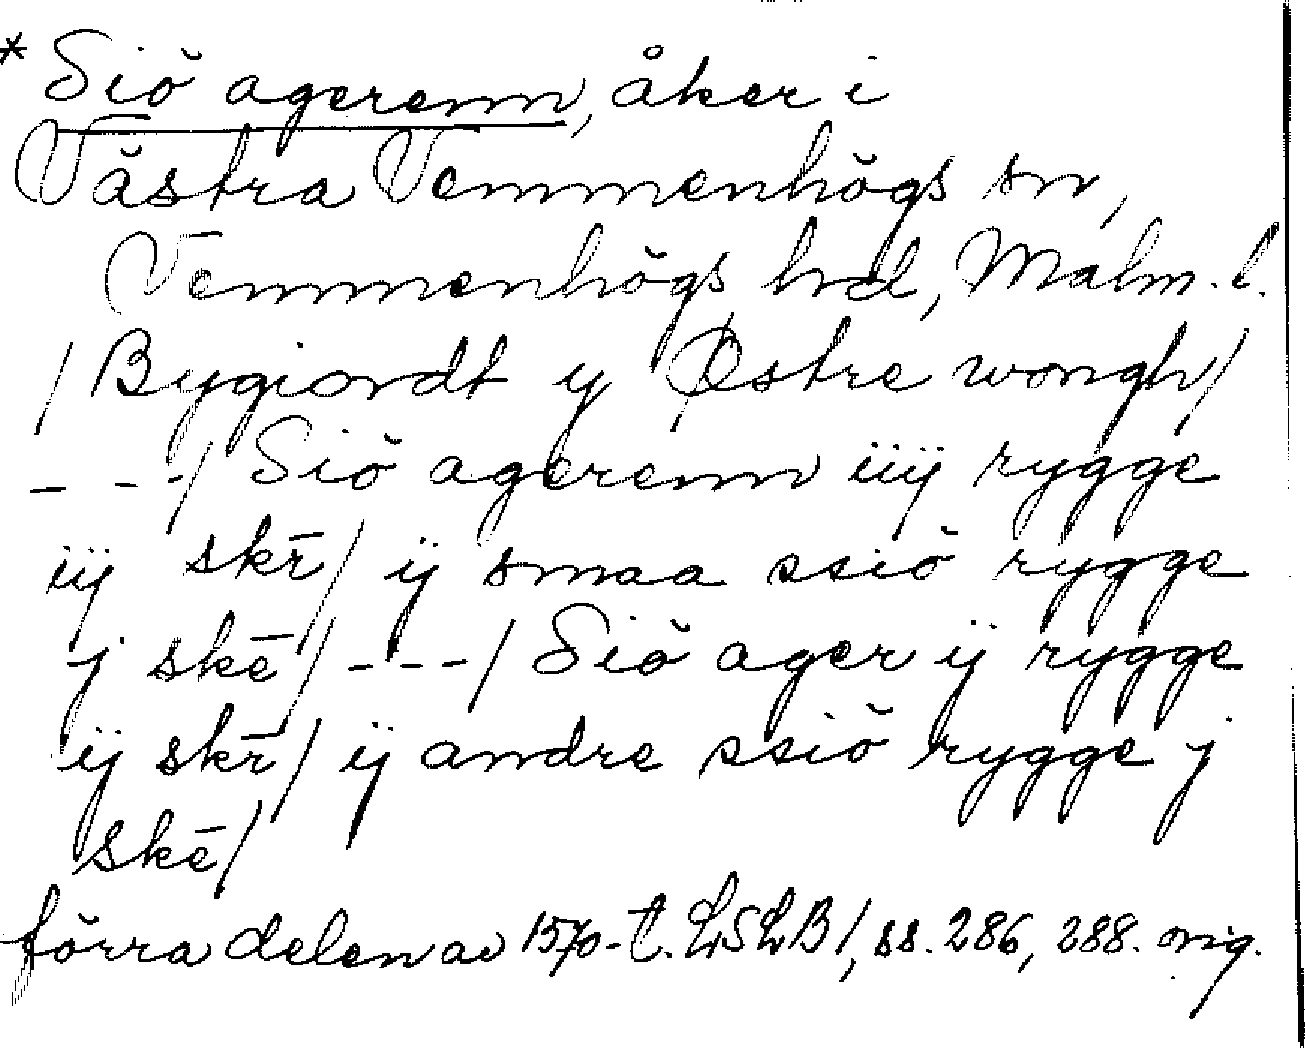 * Siö agerenn, åker i
Västra Vemmenhögs sn,
Vemmenhögs hd, Malm. l.
/ Bygiordt y Østre wongh/
- - -/ Siö agerenn iiij rygge
iij skr̄/ ij smaa ssiö rygge
j skē/ - - -/ Siö ager ij rygge
ij skr̄/ ij andre ssiö rygge j
skē/
förra delen av 1570-t. LSLB 1, ss. 286, 288. orig.